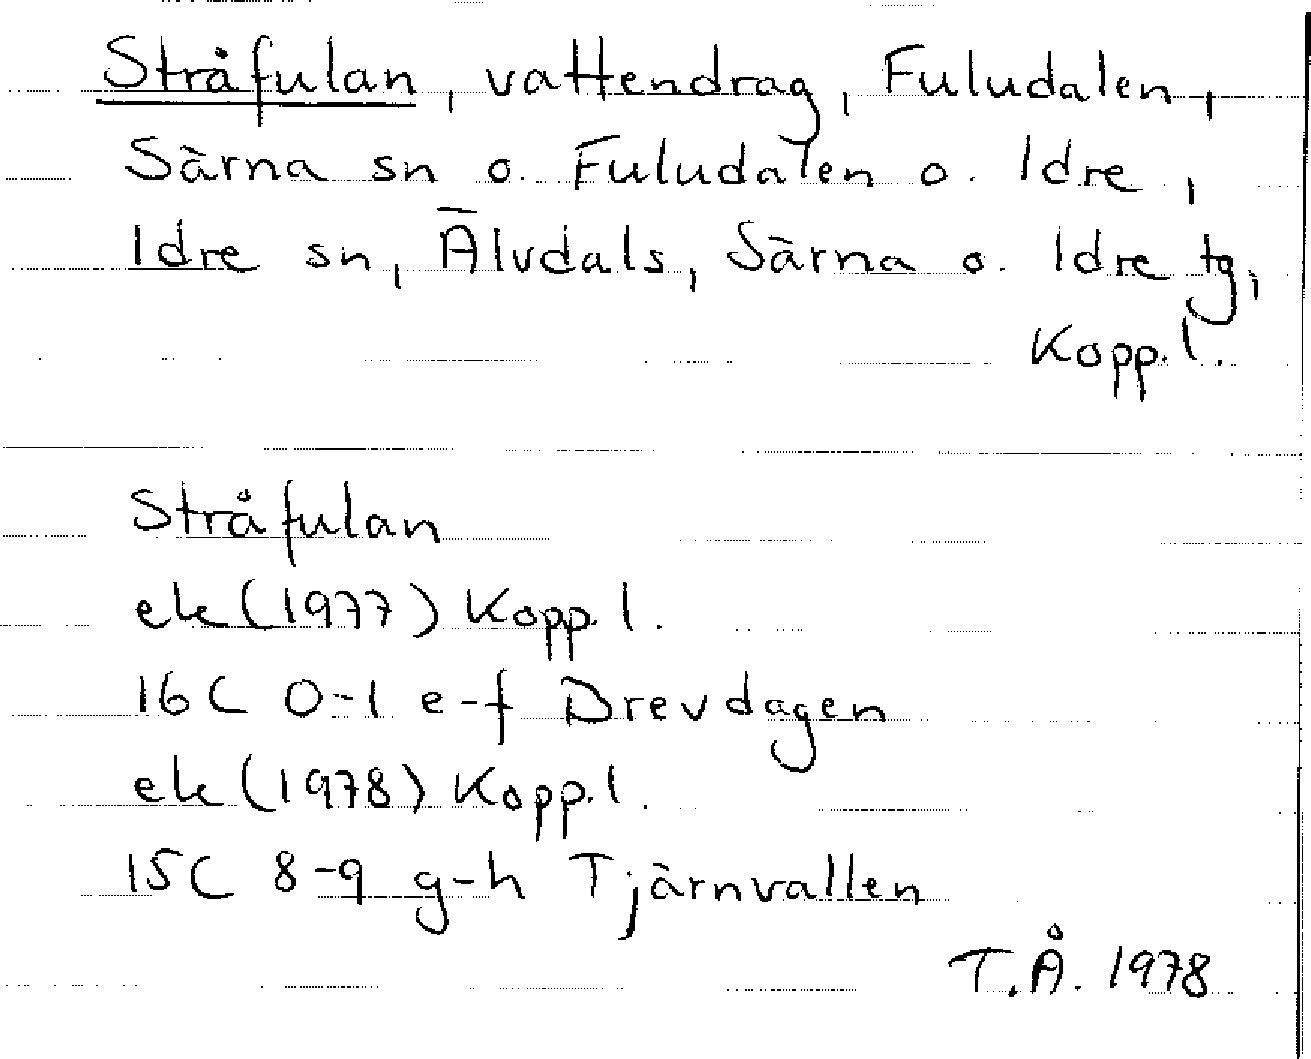 Stråfulan, vattendrag, Fuludalen,
Särna sn o. Fuludalen o. Idre,
Idre sn, Älvdals, Särna o. Idre tg,
Kopp. l.
Stråfulan
ek (1977) Kopp. l.
16C 0-1 e-f Drevdagen
ek (1978) Kopp. l.
15C 8-9 g-h Tjärnvallen
T.Å. 1978